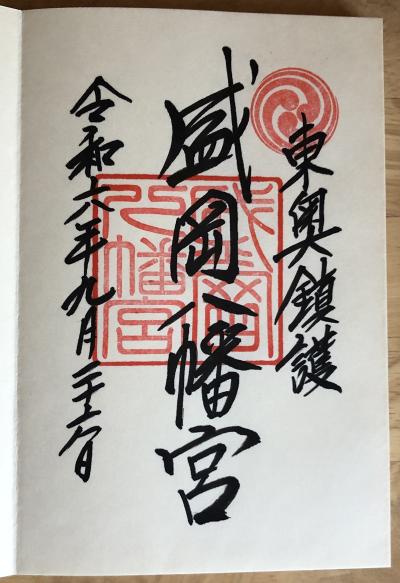 東奥鎮護
盛岡八幡宮
令和六年九月二十六日
盛岡
八幡宮